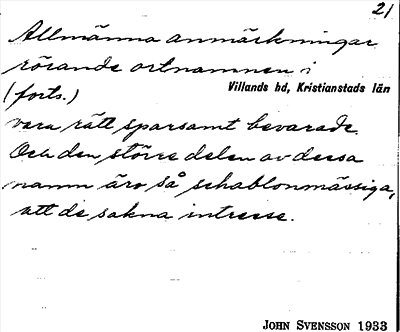 21
Allmänna anmärkningar
rörande ortnamnen i
Villands hd, Kristianstads län
(forts.)
vara rätt sparsamt bevarade.
Och den större delen av dessa
namn äro så schablonmässiga,
att de sakna intresse.
JOHN SVENSSON 1933